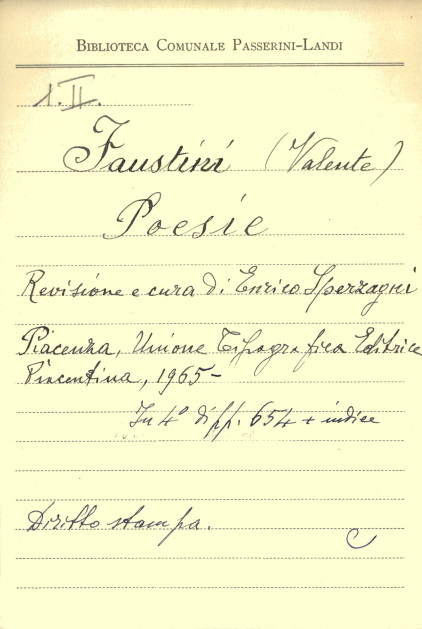 BIBLIOTECA COMUNALE PASSERINI-LANDI
1.II.
Faustini (Valente)
Poesie
Revisione e cura di Enrico Sperzagni
Piacenza, Unione Tipografica Editrice
Piacentina, 1965-
In 4° di pp. 654 + indice
Diritto stampa.
C